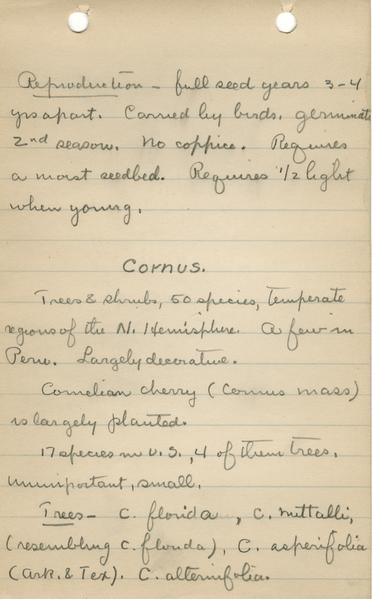 Reproduction - full seed years 3-4
yrs apart. Carried by birds, germinate
2nd season. No coppice. Requires
a moist seedbed. Requires 1/2 light
when young.
Cornus.
Trees & shrubs, 50 species, temperate
regions of the N. Hemisphere. A few in
Peru. Largely decorative.
Cornelian cherry (Cornus mass)
is largely planted.
17 species in U.S., 4 of them trees.
Unimportant, small.
Trees - C. florida, C. nuttalli,
(resembling C. florida), C. asperifolia
(Ark. & Tex). C. alternifolia.